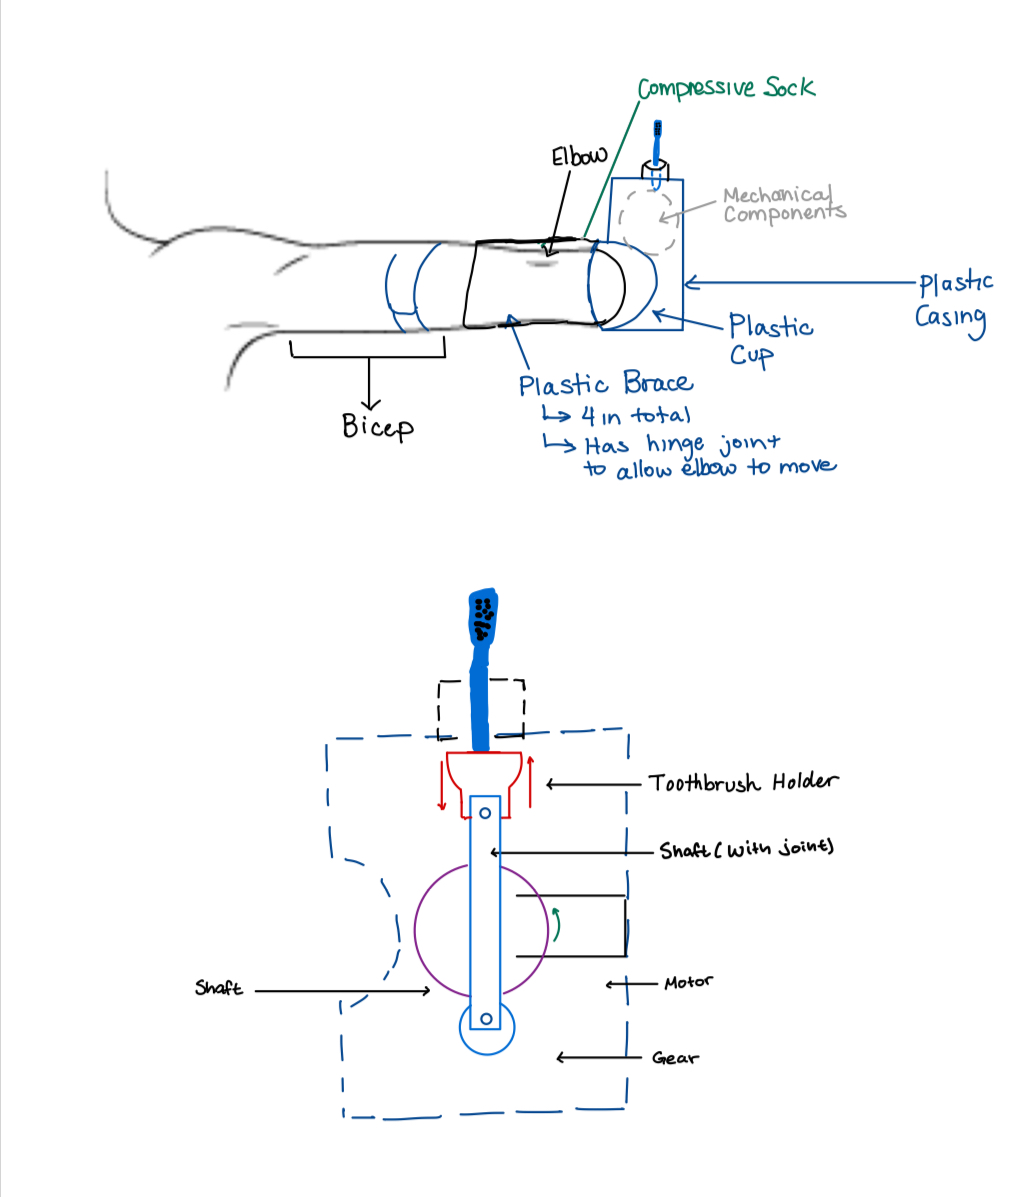 Compressive Sock
Elbow
Mechanical
Components
Plastic
Casing
Plastic
Cup
Plastic Brace
↳ 4 in total
↳ Has hinge joint
to allow elbow to move
Bicep
Toothbrush Holder
Shaft (with joint)
Shaft
Motor
Gear